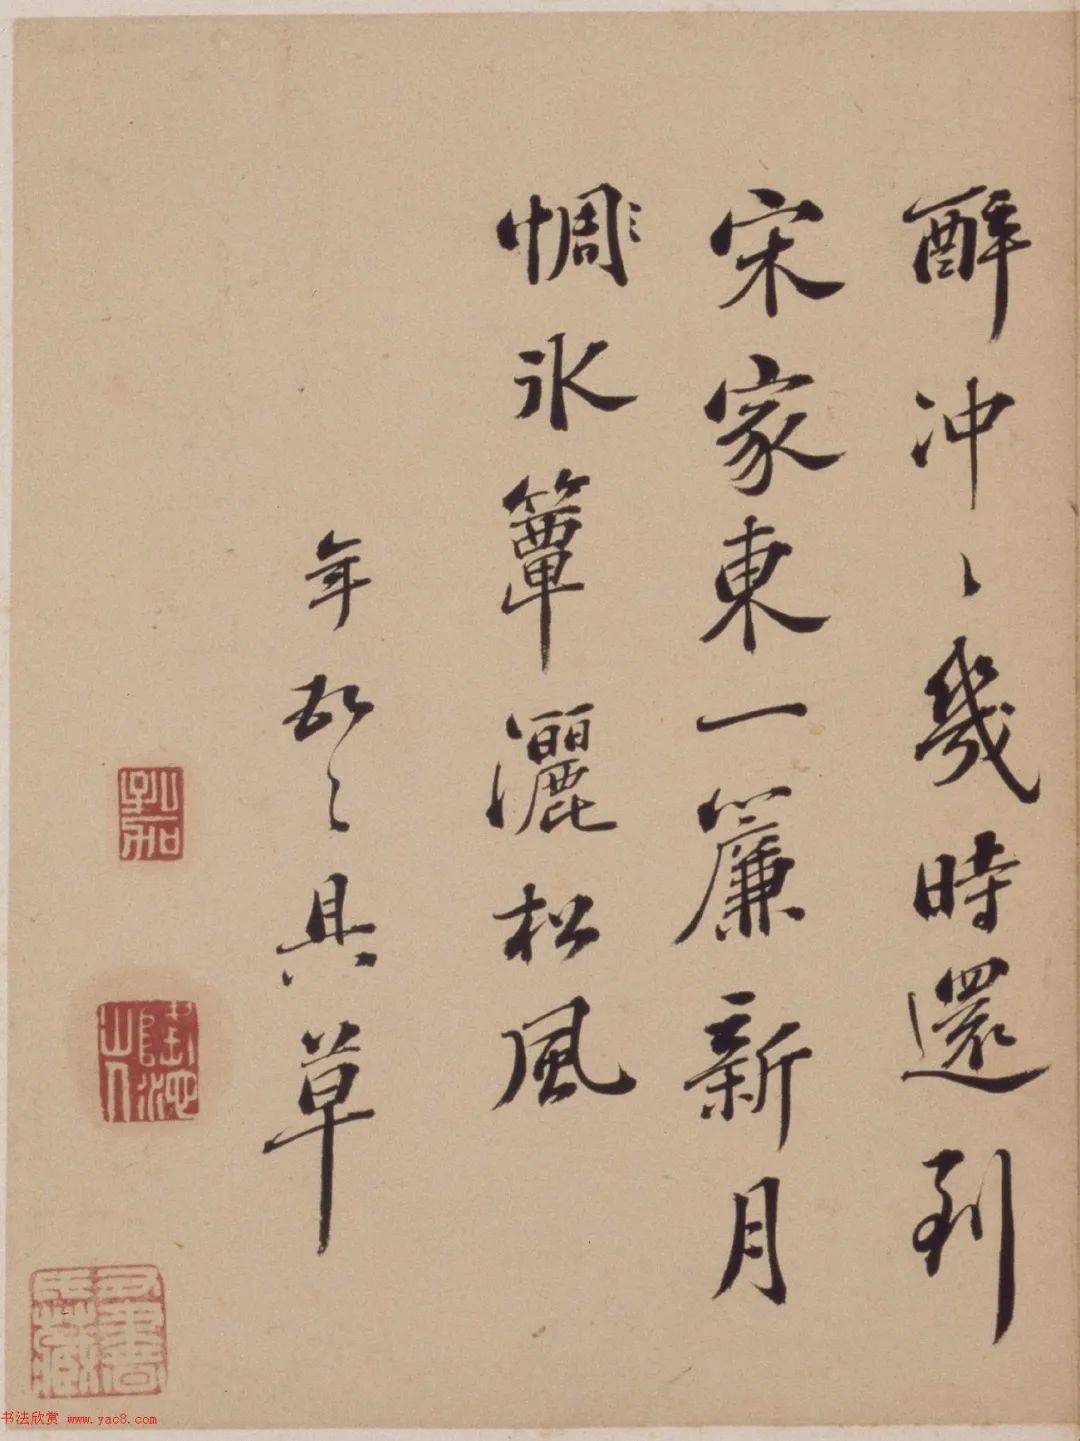 醉冲〻幾時還到
宋家東一簾新月
惆氷簟灑松風
年 具草
书法欣赏 www.yac8.com